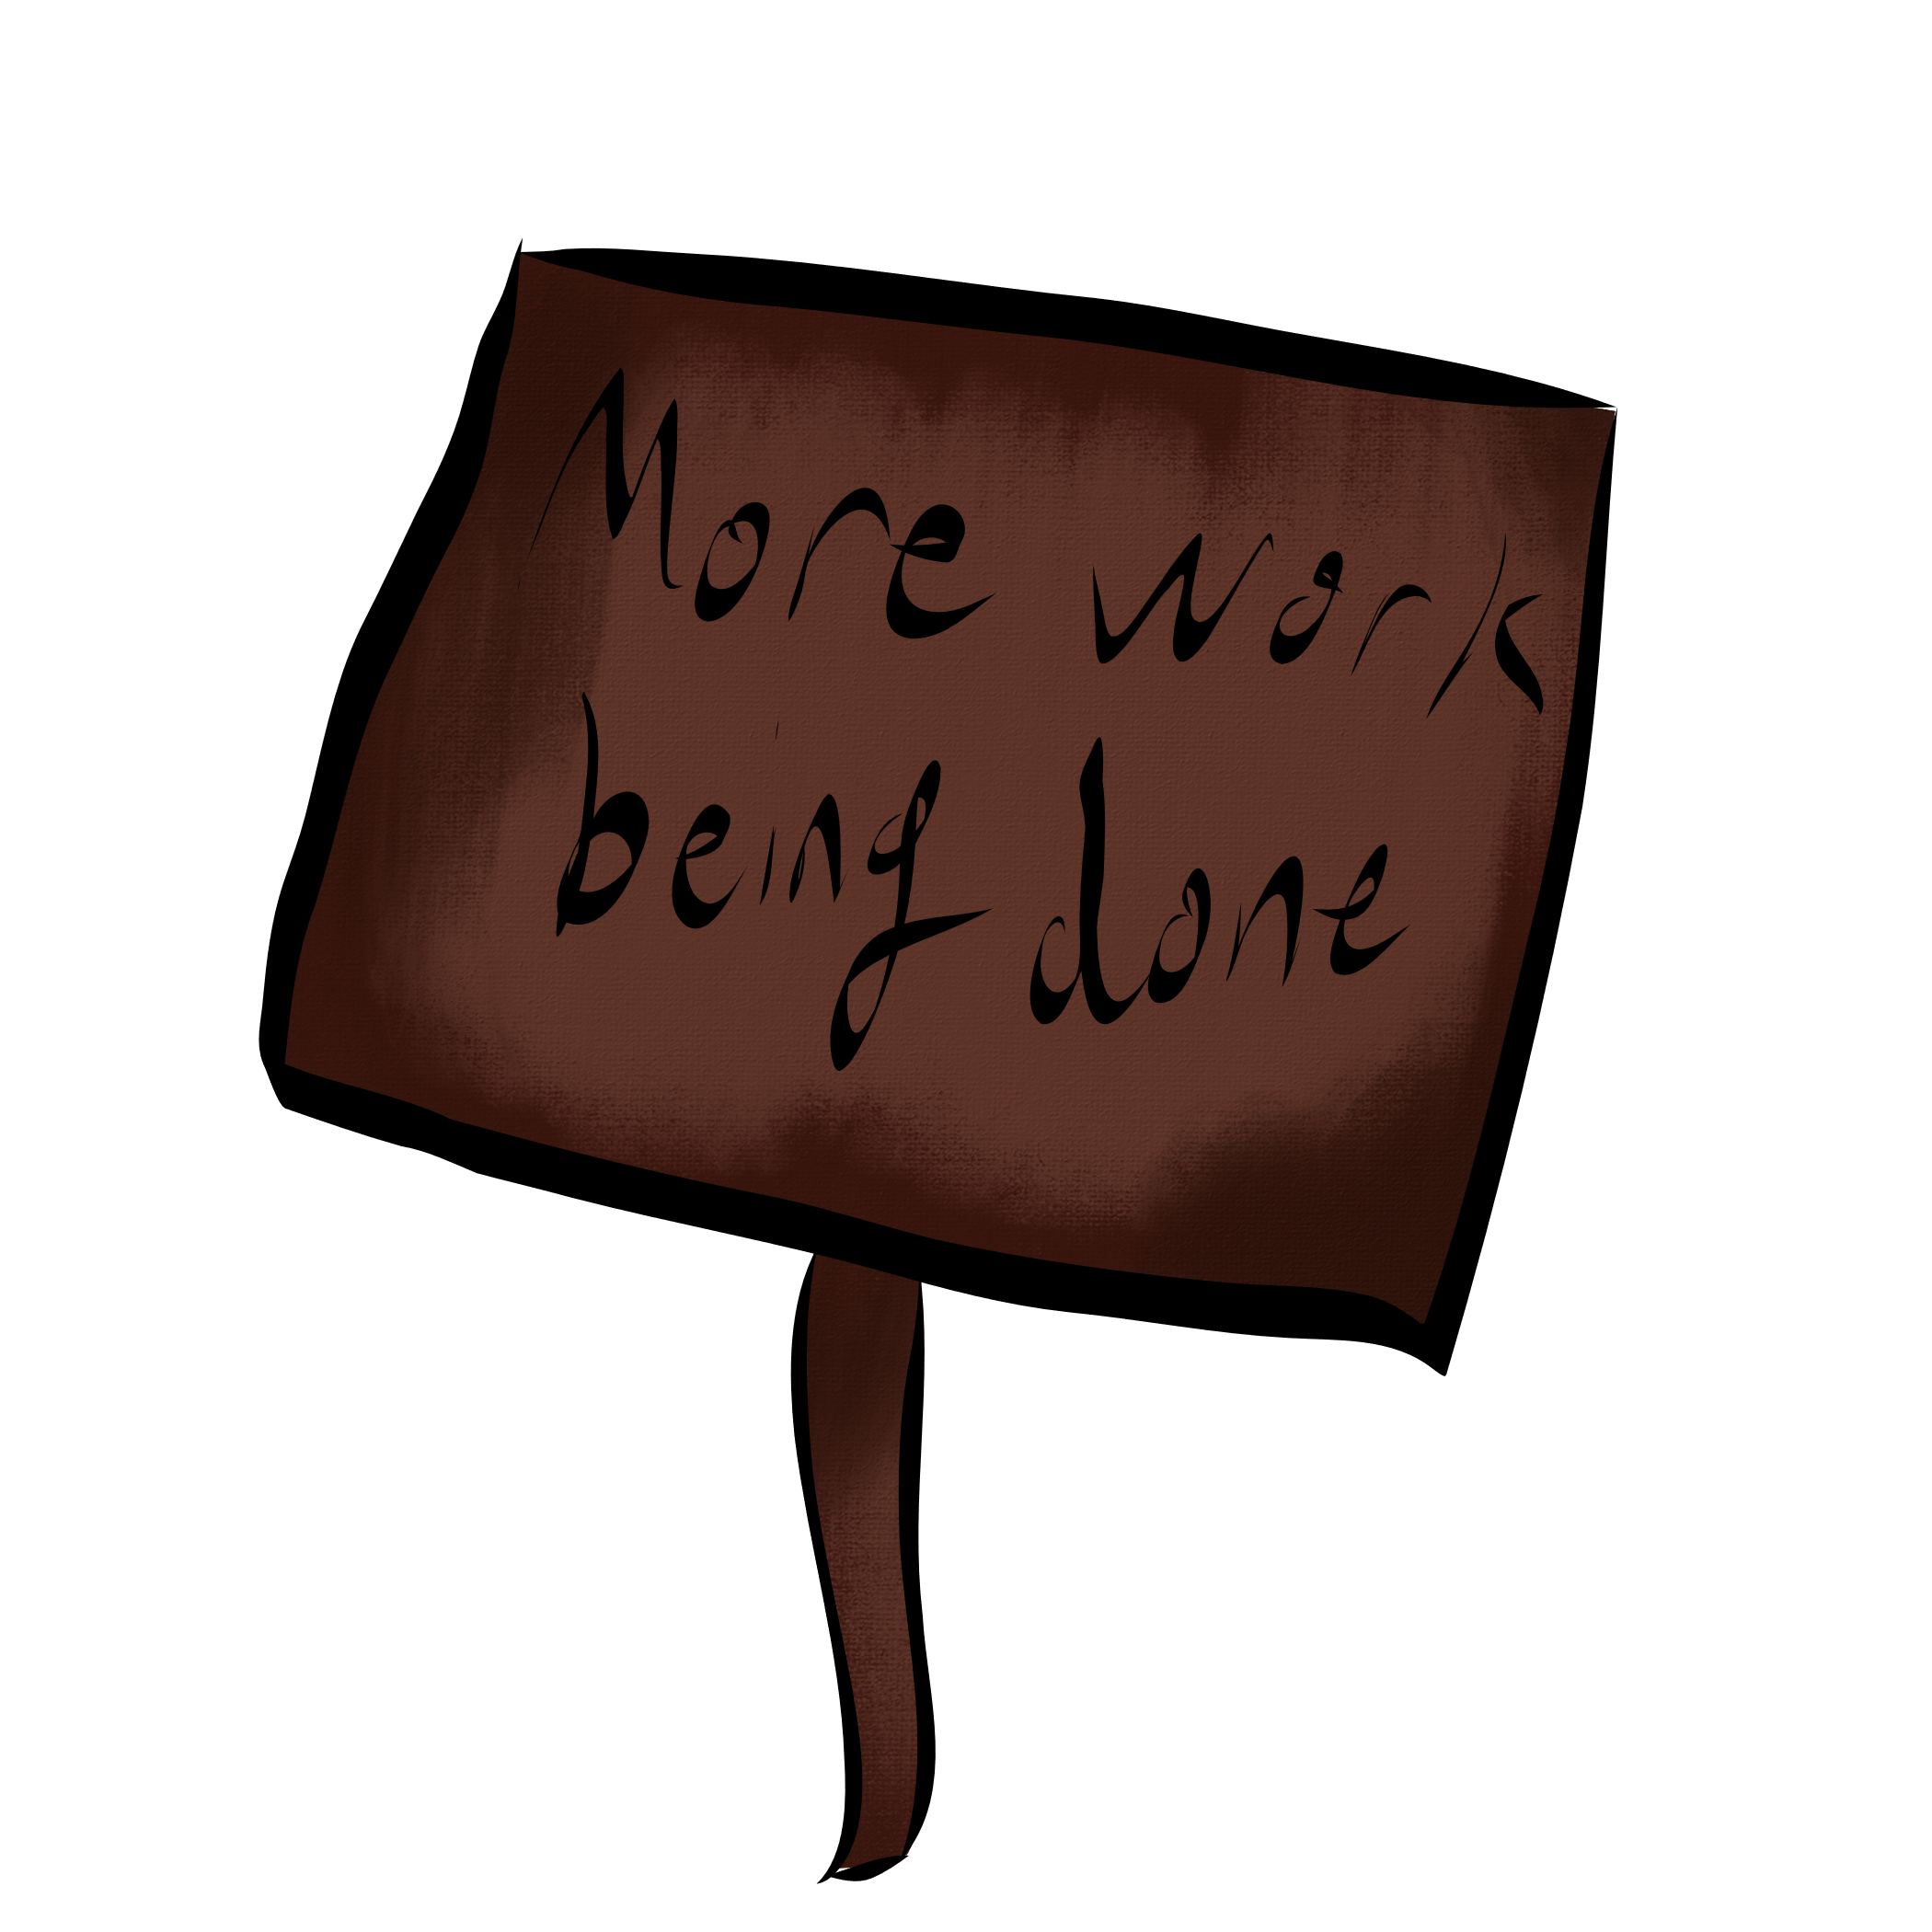 More work
being done